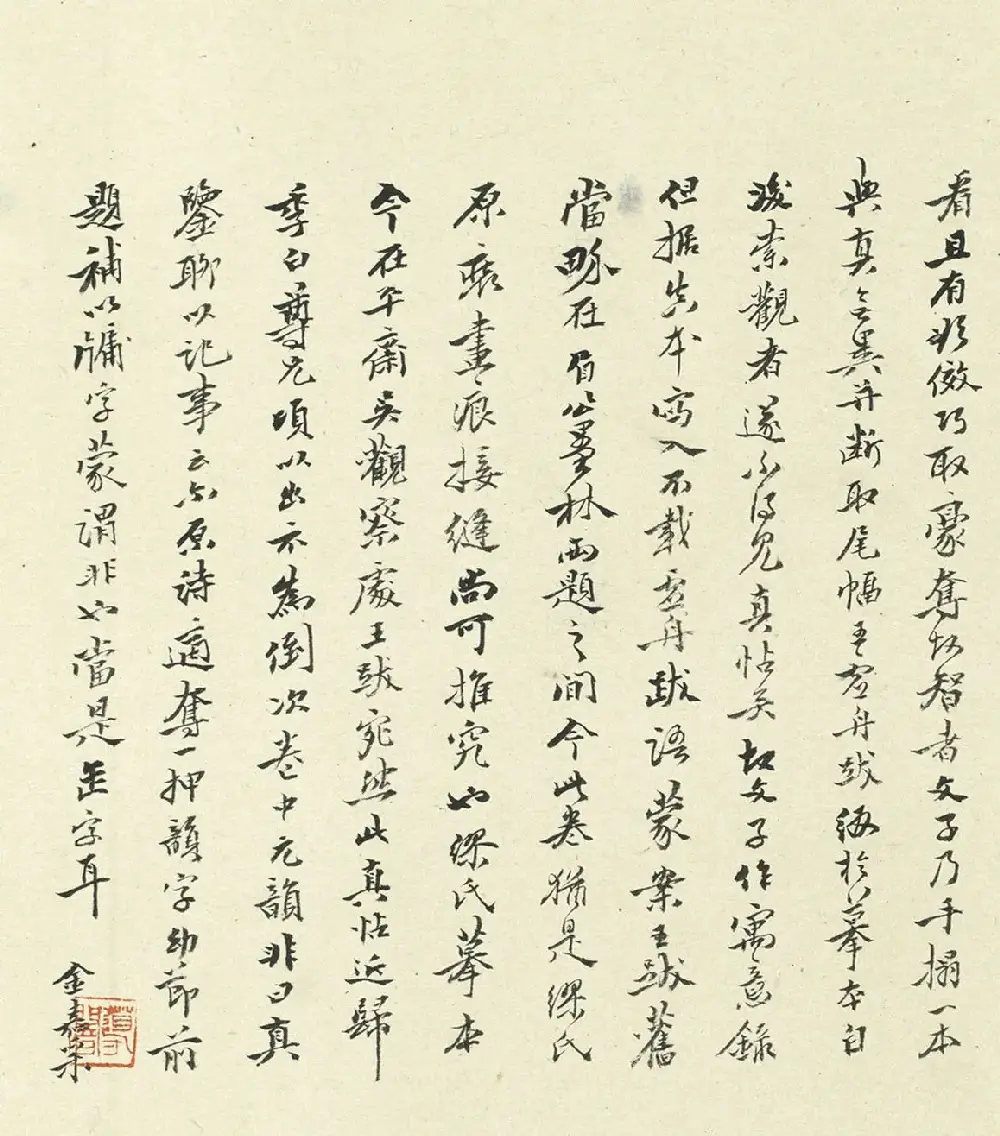 看且有欲倣巧取豪奪故智者文子乃手搨一本
與真無異并斷取尾幅王虛舟跋綴於摹本自
後索觀者遂不得見真帖矣故文子作寓意錄
但据失本寫入不載虛舟跋語蒙案王跋舊
當略在眉公墨林兩題之間今此卷猶是繆氏
原裱畫痕接縫尚可推究也繆氏摹本
今在平齋吳觀察處王跋宛然此真帖近歸
季白尊兄頃以出示為倒次卷中元韻非曰真
鑒聊以記事云尔原詩適奪一押韻字幼節前
題補以牗字蒙謂非也當是缶字耳
金嘉采